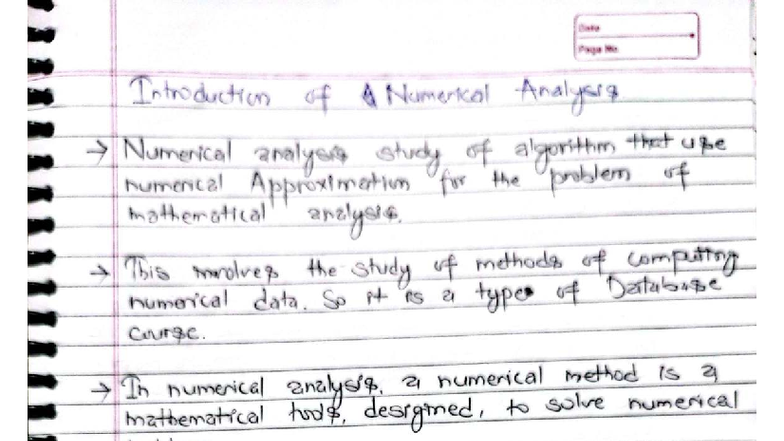 Date
Page No.
Introduction of Numerical Analysis
→ Numerical analysis study of algorithm that use
numerical Approximation for the problem of
mathematical analysis.
→ This involves the study of methods of computing
numerical data. So it is a type of Database
course.
→ In numerical analysis, a numerical method is a
mathematical tools, designed, to solve numerical